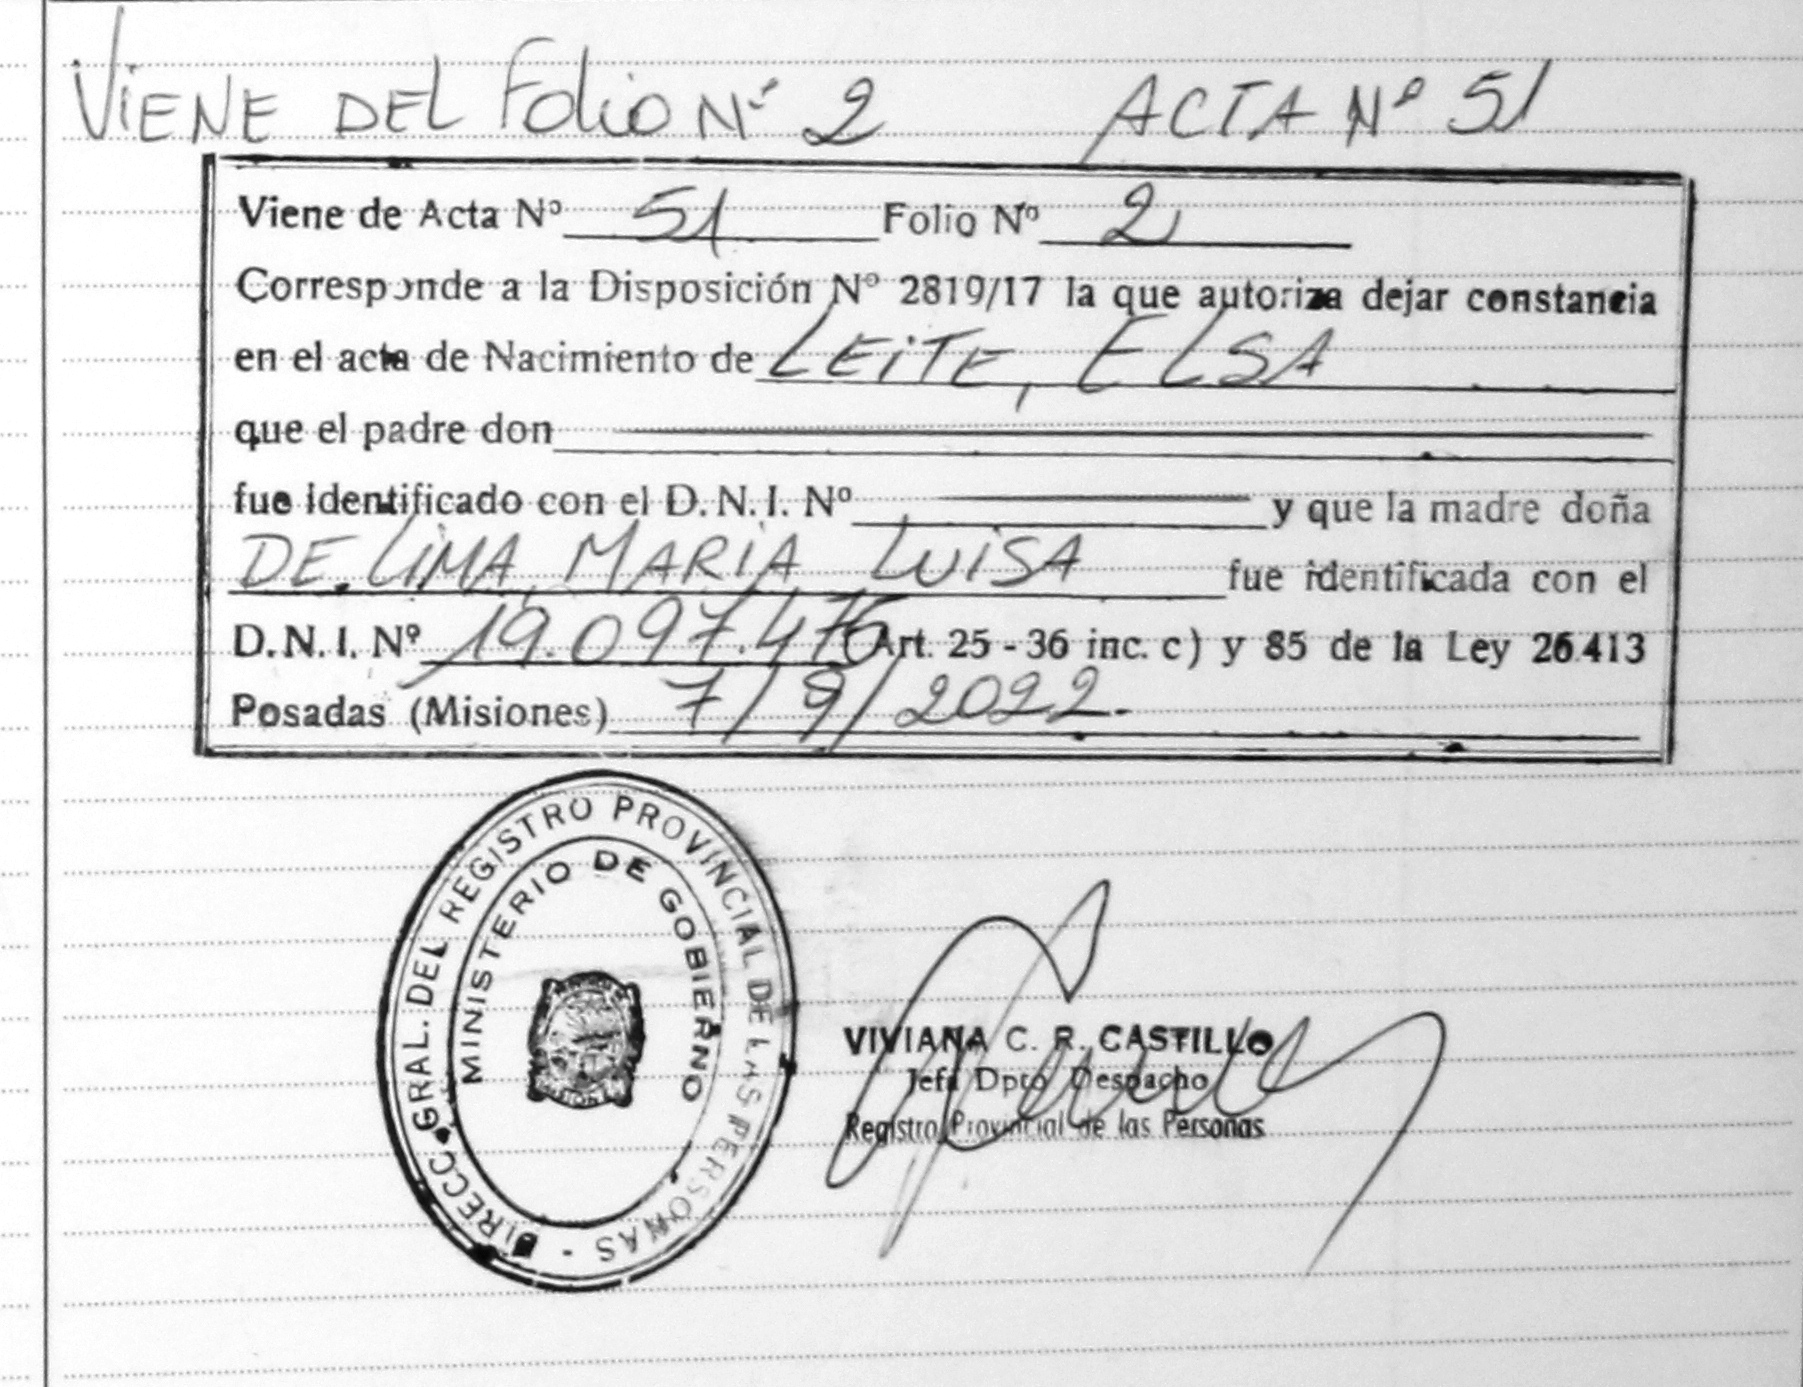 VIENE DEL Folio Nº 2 ACTA Nº 51
Viene de Acta Nº 51 Folio Nº 2
Corresponde a la Disposición Nº 2819/17 la que autoriza dejar constancia
en el acta de Nacimiento de LEITE, ELSA
que el padre don
fue identificado con el D.N.I. Nº y que la madre doña
DE LIMA, MARIA LUISA fue identificada con el
D.N.I. Nº 19.097.476 (Art. 25 - 36 inc. c) y 85 de la Ley 26.413
Posadas (Misiones) 7/9/2022.-
DIRECC. GRAL. DEL REGISTRO PROVINCIAL DE LAS PERSONAS -
MINISTERIO DE GOBIERNO
VIVIANA C. R. CASTILLO
Jefa Dpto. Despacho
Registro Provincial de las Personas